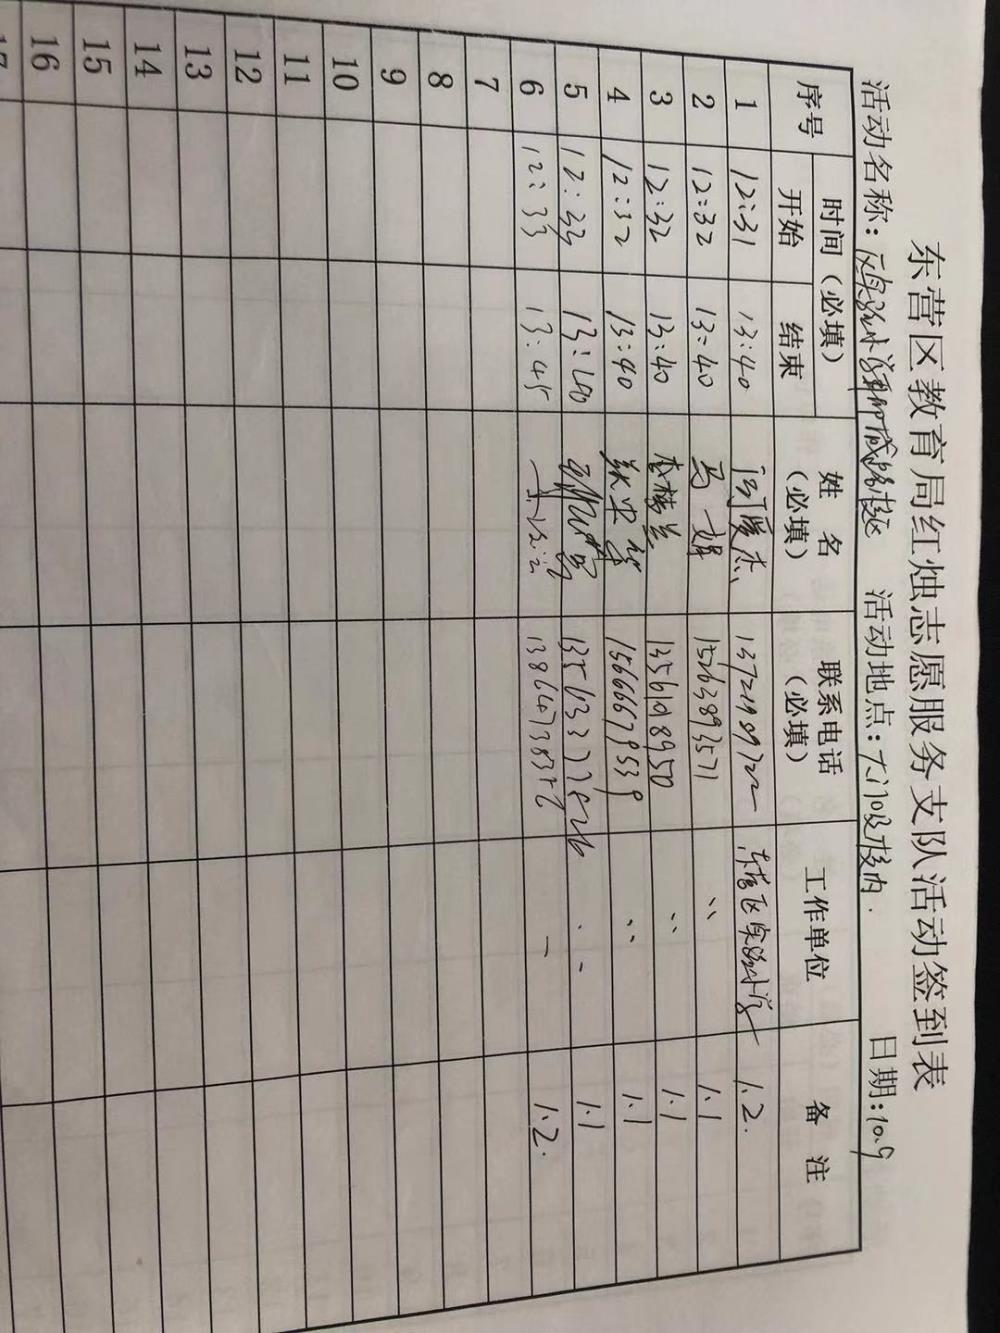 东营区教育局红烛志愿服务支队活动签到表
活动名称：区实验小学 校区 活动地点：大门口及校内. 日期：10.9
序号 时间（必填） 姓名（必填） 联系电话（必填） 工作单位 备注
开始 结束
1 12:31 13:40 13721989722 东营区实验小学 1.2.
2 12:32 13:40 马 15263893571 〃 1.1
3 12:32 13:40 李桂兰 〃 1.1
4 12:32 13:40 15666679539 〃 1.1
5 12:33 1.1
6 12:33 13:45 1.2.
7
8
9
10
11
12
13
14
15
16
17